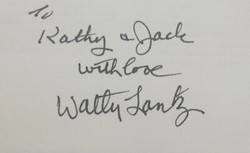 To
Kathy & Jack
with love
Walty Lantz